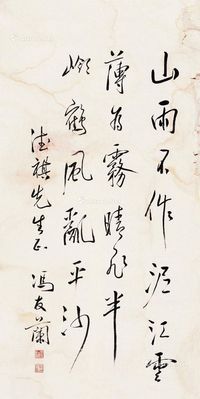 山雨不作泥江雲
薄為霧晴飛半
嶺鶴風亂平沙
德祺先生正
馮友蘭